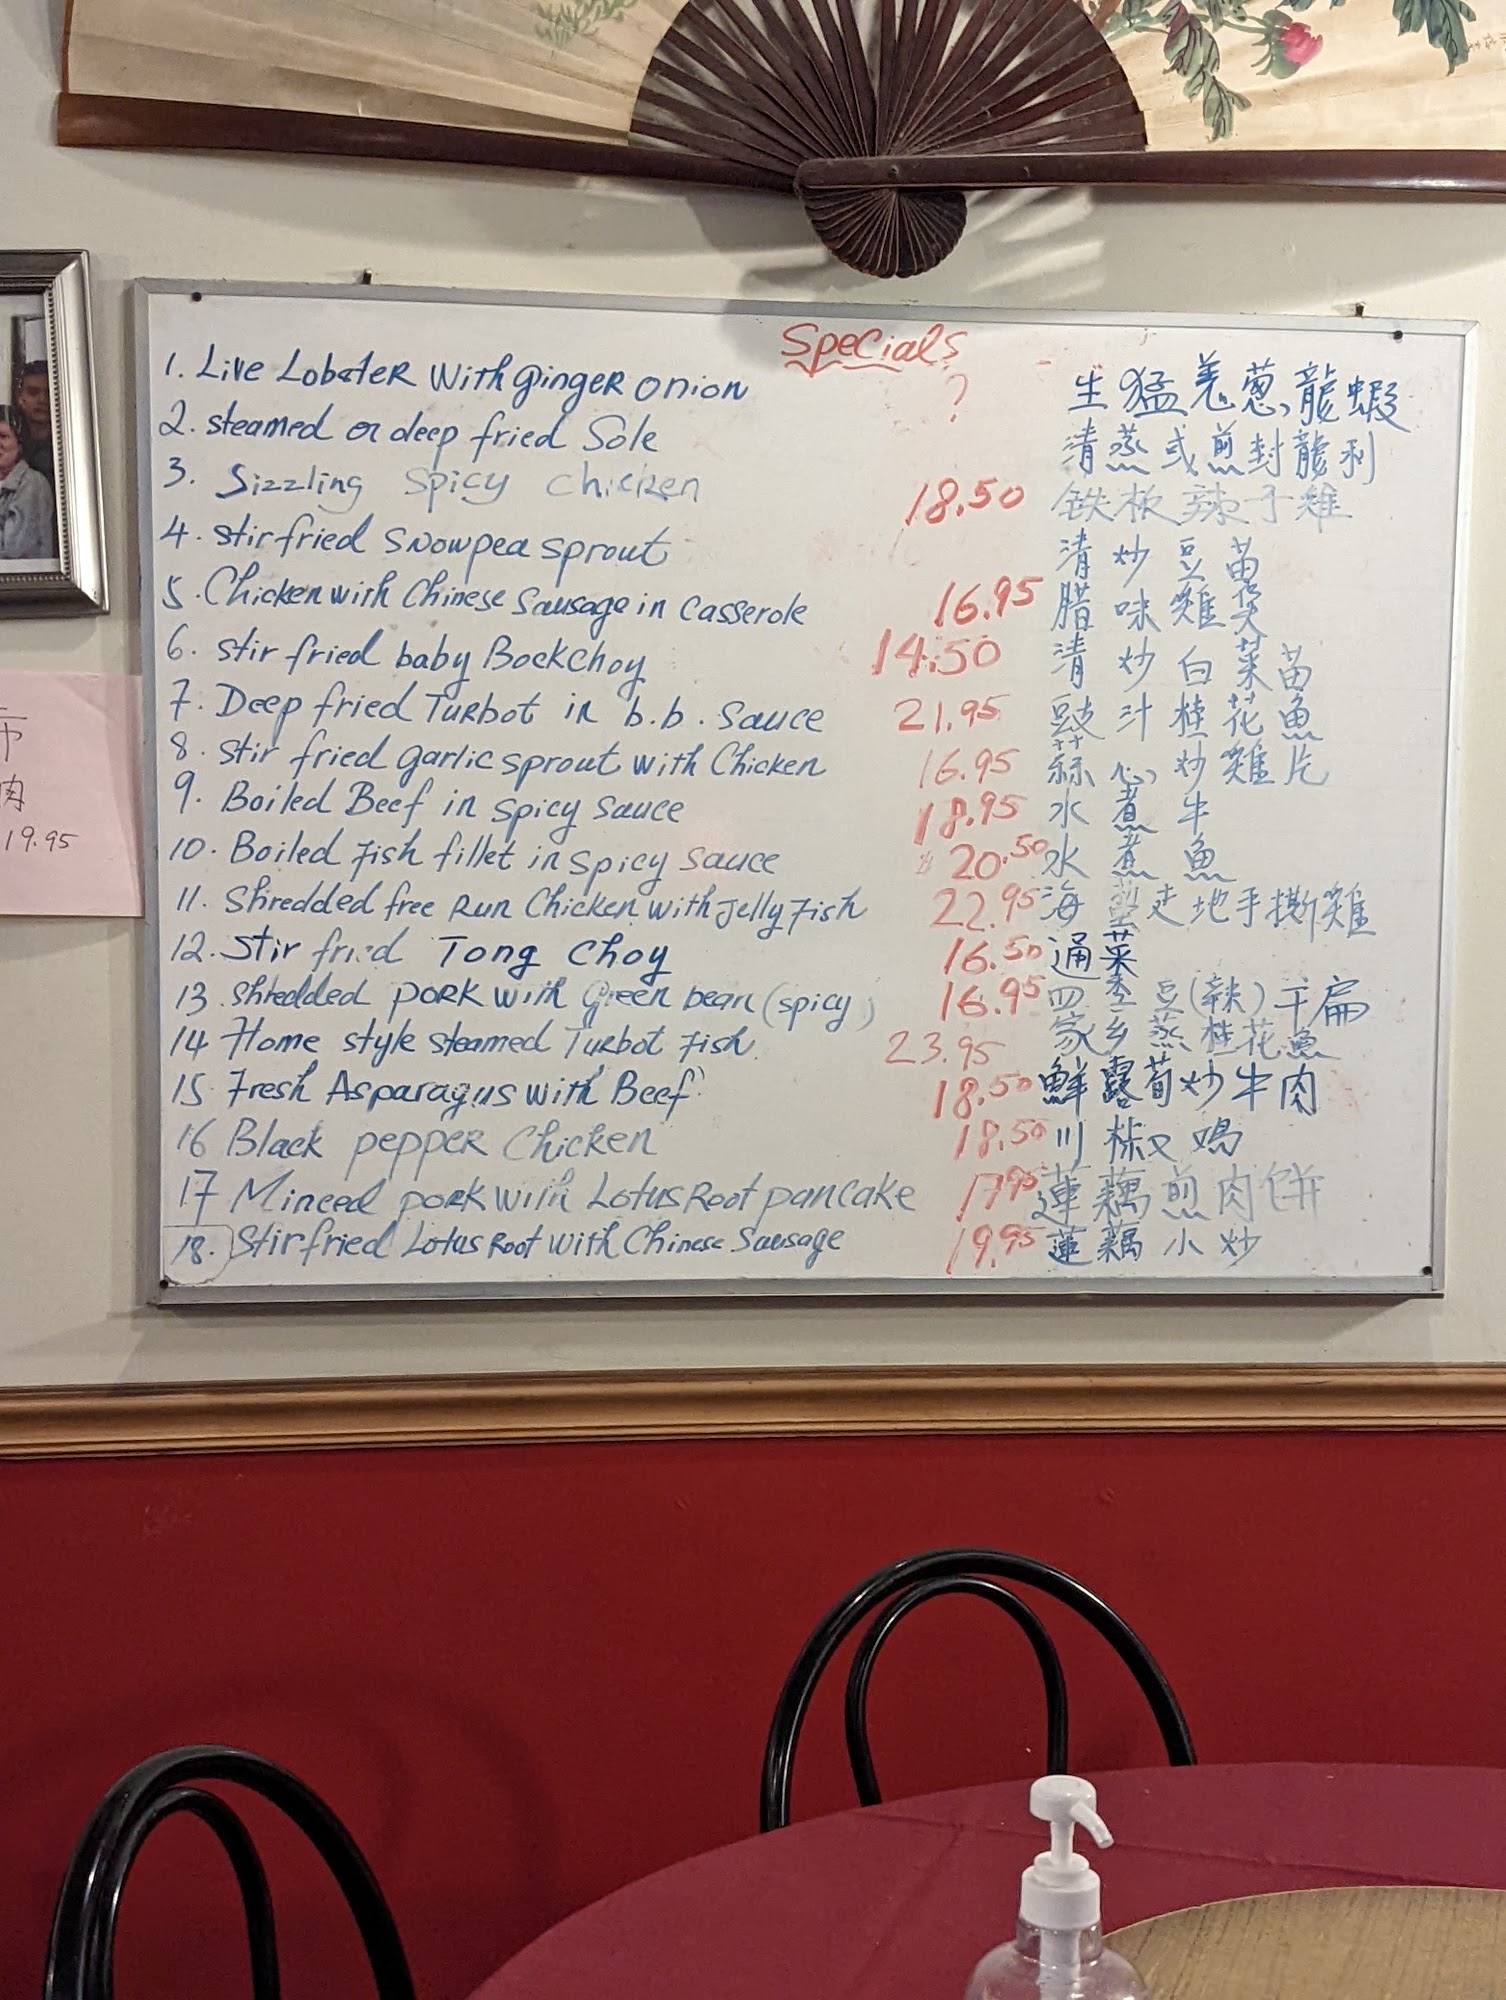 Specials
1. Live Lobster with ginger onion ? 生猛羗葱龍蝦
2. steamed or deep fried Sole 清蒸或煎封龍利
3. Sizzling Spicy Chicken 18.50 铁板辣子雞
4. stir fried snowpea sprout 清炒豆苗
5. Chicken with Chinese Sausage in Casserole 16.95 腊味雞煲
6. stir fried baby Bockchoy 14.50 清炒白菜苗
7. Deep fried Turbot in b.b. Sauce 21.95 豉汁桂花魚
8. stir fried garlic sprout with Chicken 16.95 蒜心炒雞片
9. Boiled Beef in Spicy Sauce 18.95 水煮牛
10. Boiled Fish fillet in Spicy Sauce $20.50 水煮魚
11. Shredded free Run Chicken with Jelly Fish 22.95 海蜇走地手撕雞
12. Stir fried Tong Choy 16.50 通菜
13. Shredded pork with Green bean (spicy) 16.95 四季豆(辣)干扁
14. Home style steamed Turbot Fish 23.95 家乡蒸桂花魚
15. Fresh Asparagus with Beef 18.50 鮮露荀炒牛肉
16 Black pepper Chicken 18.50 川椒
17 Minced pork with Lotus Root pancake 17.95 蓮藕煎肉饼
18. Stir fried Lotus Root with Chinese Sausage 19.95 蓮藕小炒
市
肉
19.95